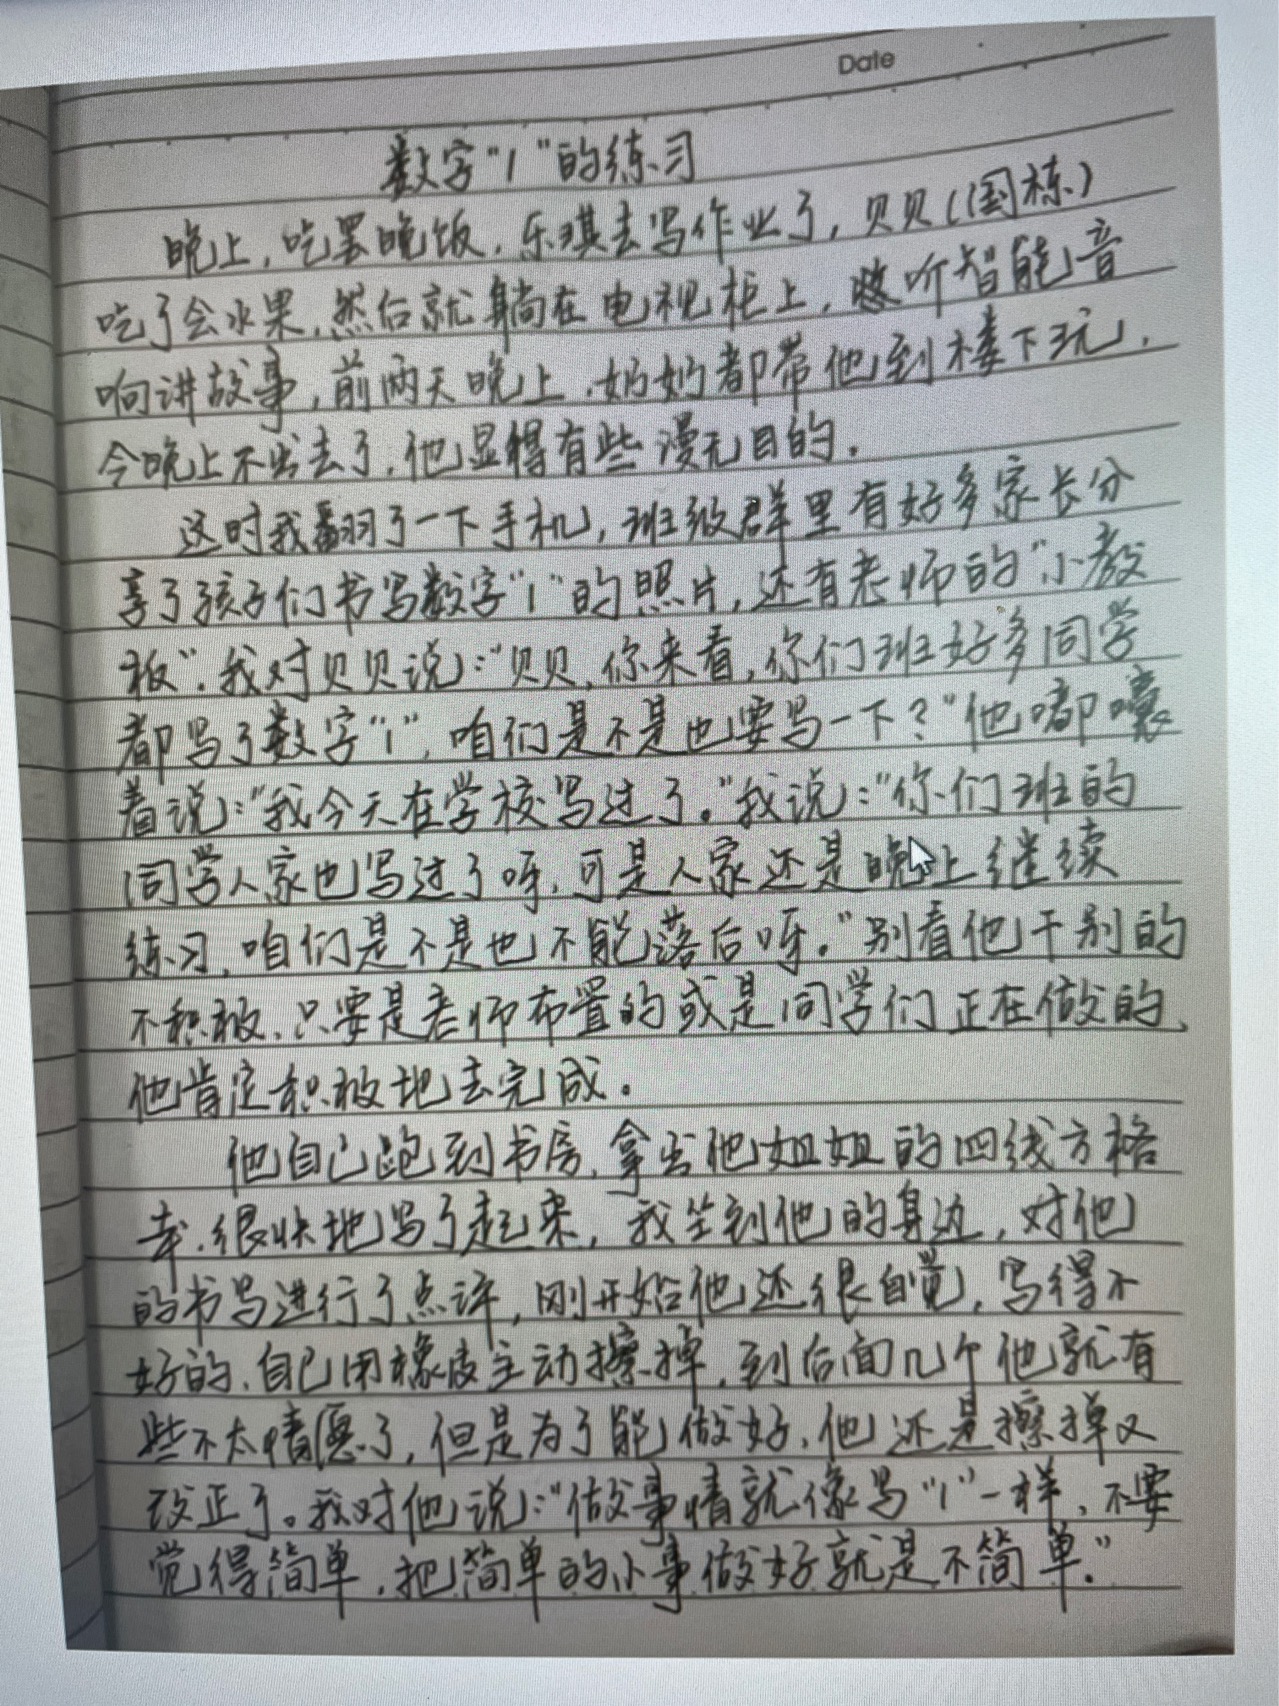 Date
数字“1”的练习
晚上,吃罢晚饭,乐琪去写作业了,贝贝(国栋)
吃了会水果,然后就躺在电视柜上,听智能音
响讲故事,前两天晚上,奶奶都带他到楼下玩,
今晚上不出去了,他显得有些漫无目的.
这时我翻了一下手机,班级群里有好多家长分
享了孩子们书写数字“1”的照片,还有老师的“小教
板”.我对贝贝说:“贝贝,你来看,你们班好多同学
都写了数字“1”,咱们是不是也要写一下?”他嘟囔
着说:“我今天在学校写过了。”我说:“你们班的
同学人家也写过了呀,可是人家还是晚上继续
练习,咱们是不是也不能落后呀。”别看他干别的
不积极,只要是老师布置的或是同学们正在做的,
他肯定积极地去完成。
他自己跑到书房,拿出他姐姐的四线方格
本,很快地写了起来,我坐到他的身边,对他
的书写进行了点评,刚开始他还很自觉,写得不
好的,自己用橡皮主动擦掉,到后面几个他就有
些不太情愿了,但是为了能做好,他还是擦掉又
改正了。我对他说:“做事情就像写“1”一样,不要
觉得简单,把简单的小事做好就是不简单.”